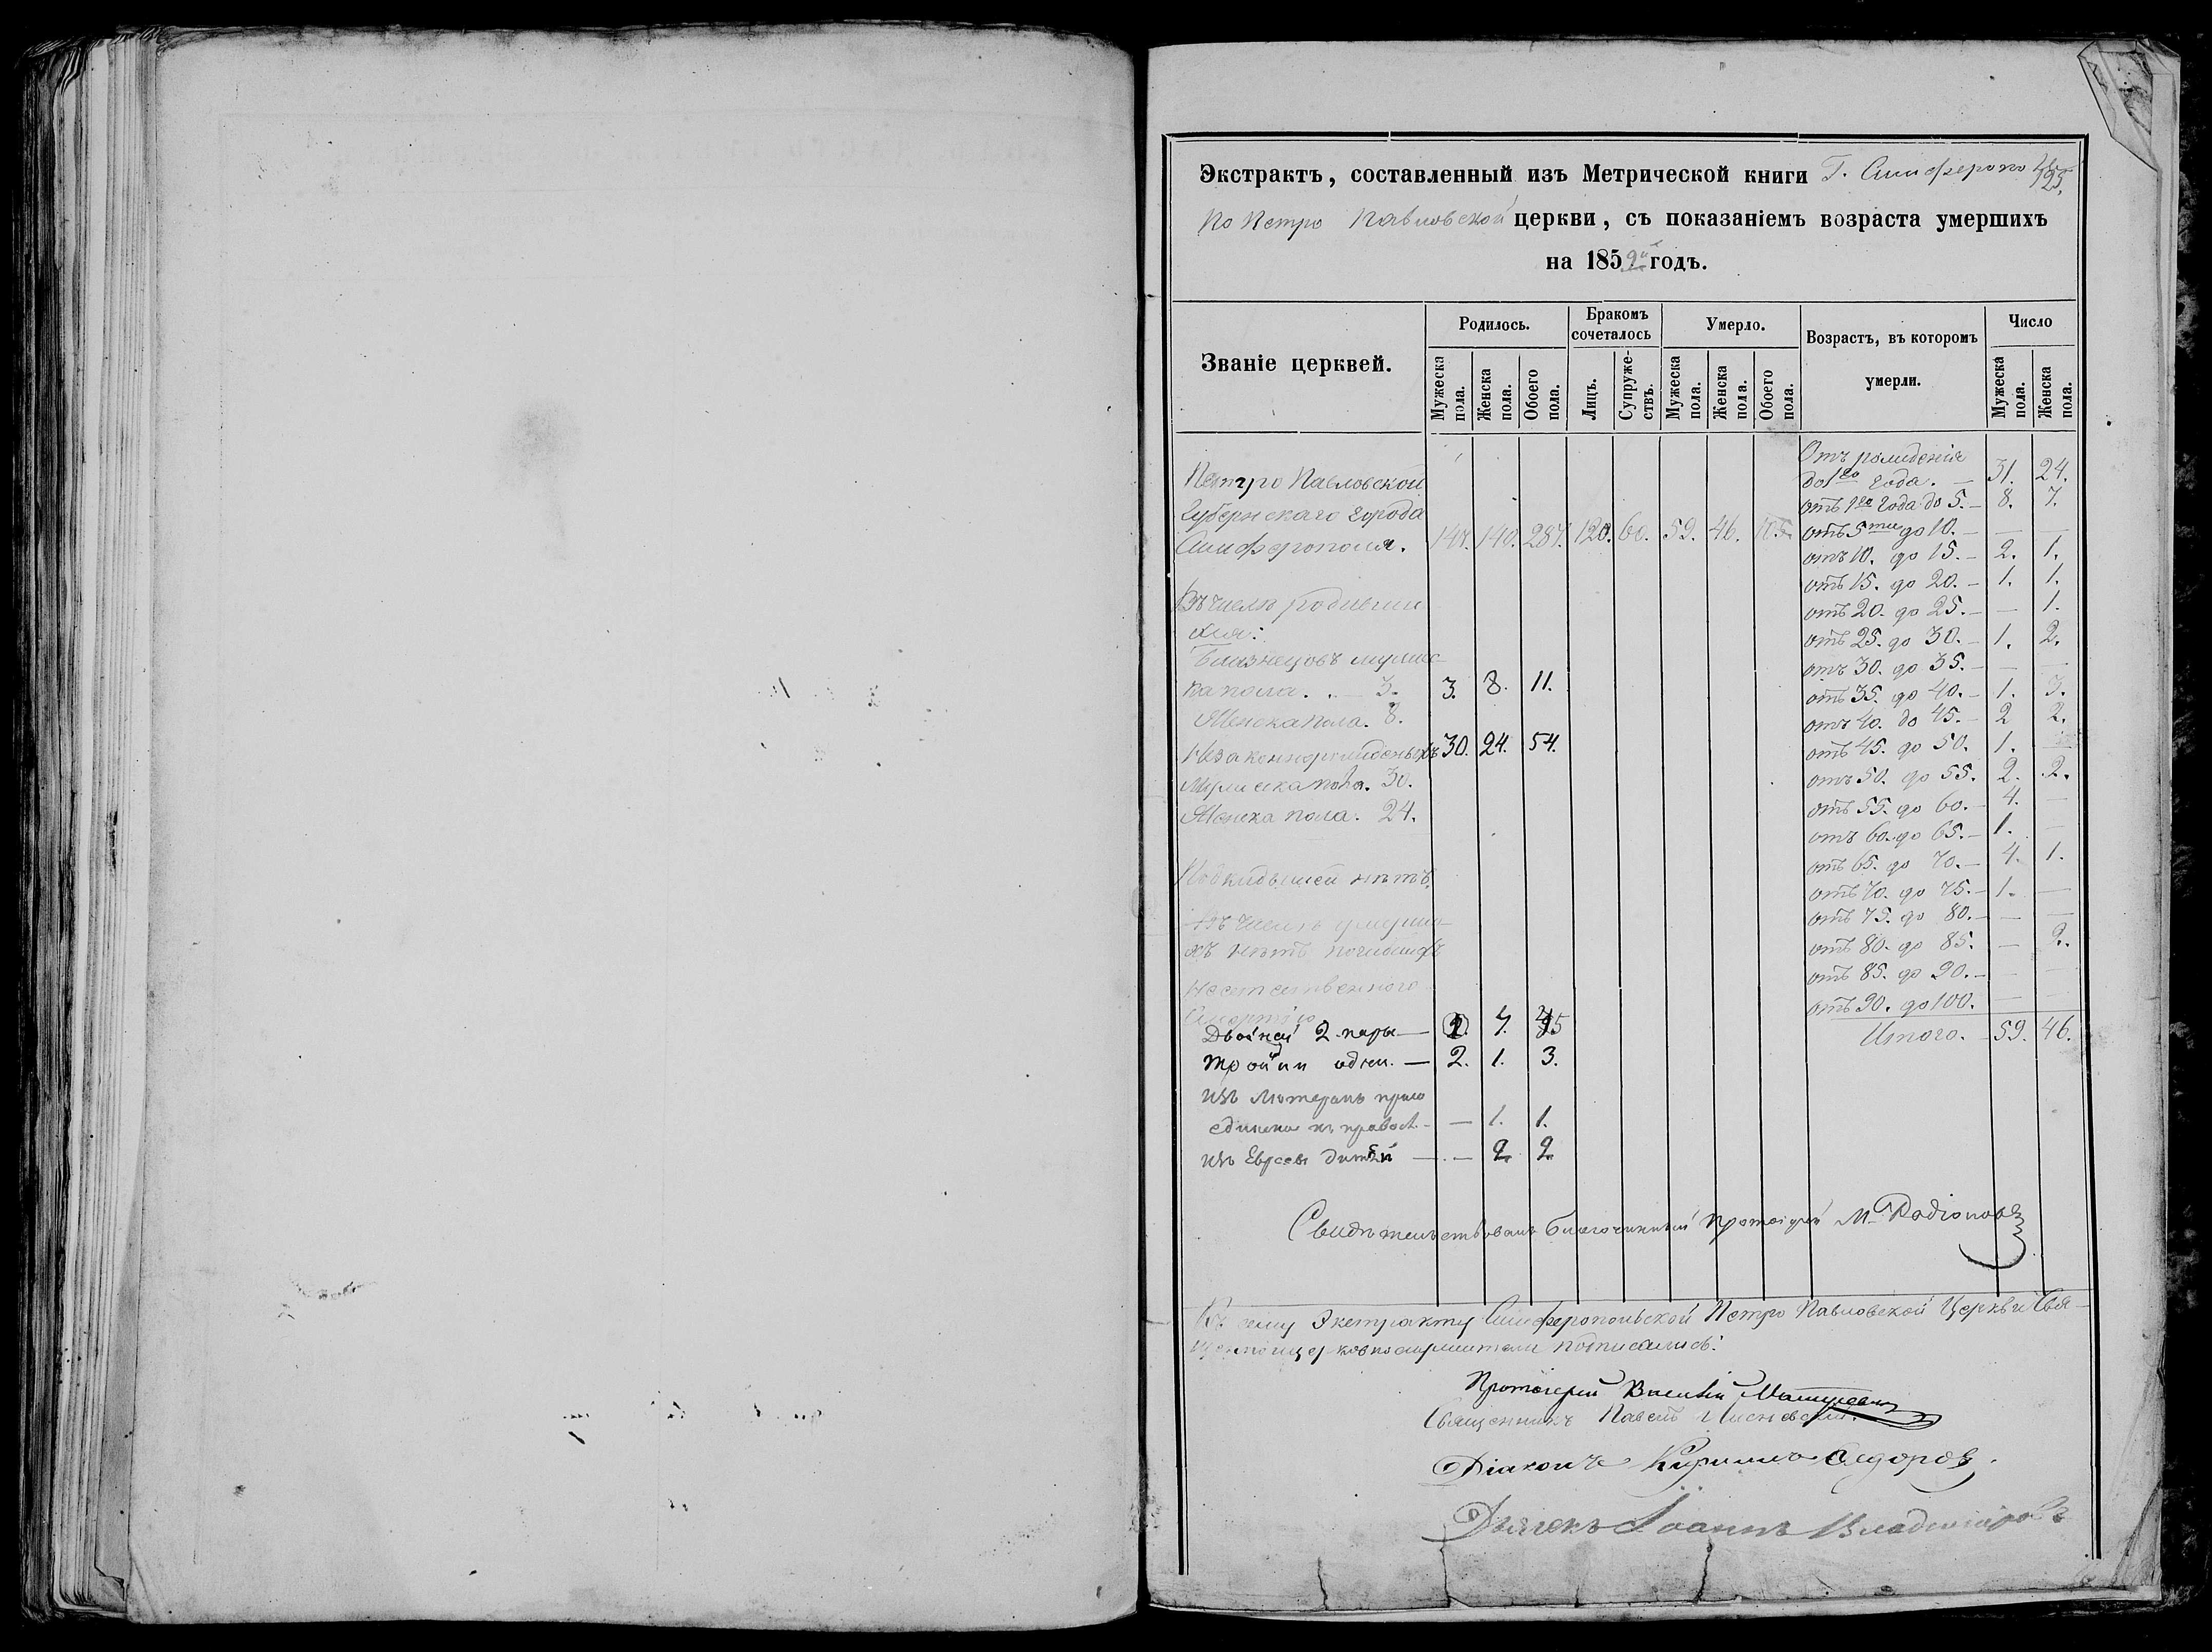 Экстрактъ, составленный изъ Метрической книги Г. Симферопо
125.
по Петро Павловской церкви, съ показаніемъ возраста умершихъ
на 1859й годъ.
Званіе церквей.
Родилось.
Бракомъ сочеталось
Умерло.
Возрастъ, въ которомъ умерли.
Число
Мужеска пола.
Женска пола.
Обоего пола.
Лицъ.
Супружествъ.
Мужеска пола.
Женска пола.
Обоего пола.
Мужеска пола.
Женска пола.
Петро Павловской
Губернскаго города
Симферополя. 147. 140. 287. 120. 60. 59. 46. 105.
Въ числѣ родивши
хся:
Близнецовъ мужес
ка пола. . — 3. 3. 8. 11.
Женска пола. 8.
Незаконнорожденныхъ 30. 24. 54.
Мужеска пола. 30.
Женска пола. 24.
Подкидышей нѣтъ.
Въ числѣ умерши
хъ нѣтъ погибшихъ
неестественного
смертію
Двойней 2 пары —
Тройни одни. — 2. 1. 3.
изъ Лютеранъ присо
единена къ правосл. — — 1. 1.
изъ Евреевъ дѣтей — — 2 2
Отъ рожденія
до 1го года. — 31. 24.
отъ 1го года до 5. — 8. 7.
отъ 5ти до 10. — — —
отъ 10. до 15. — 2. 1.
отъ 15. до 20. — 1. 1.
отъ 20. до 25. — — 1.
отъ 25. до 30. — 1. 2.
отъ 30. до 35. — — —
отъ 35. до 40. — 1. 3.
отъ 40. до 45. — 2 2.
отъ 45. до 50. 1. —
отъ 50. до 55. 2. 2.
отъ 55. до 60. — 4. —
отъ 60. до 65. — 1. —
отъ 65. до 70. — 4. 1.
отъ 70. до 75. — 1. —
отъ 75. до 80. — — —
отъ 80. до 85. — 2.
отъ 85. до 90. — — —
отъ 90. до 100. — —
Итого. — 59. 46.
Свидѣтельствовалъ благочинный Протоіерей М. Родіоновъ
Къ сему Экстракту Симферопольской Петро Павловской Церкви Свя-
щенноцерковнослужители подписались:
Протоіерей Василій
Священникъ Павелъ
Діаконъ Кириллъ Ѳедоровъ.
Дьячекъ Іоаннъ Владиміровъ